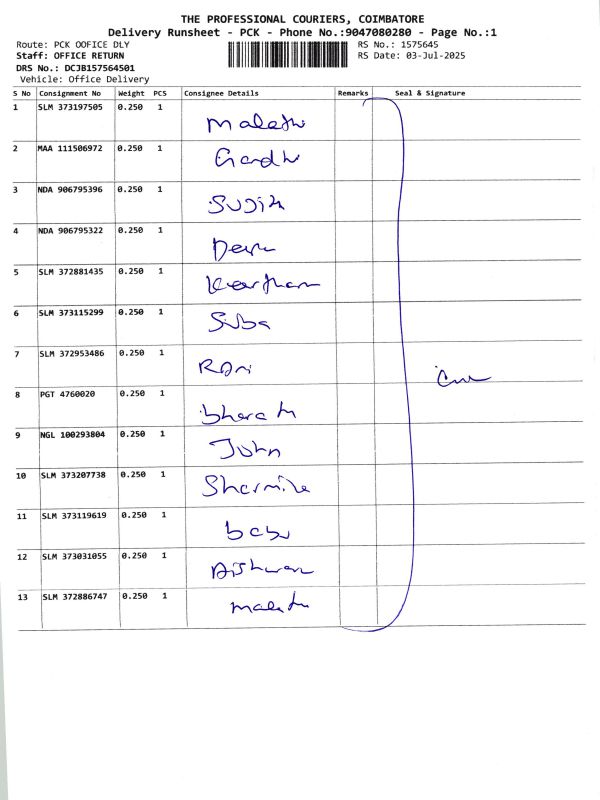 THE PROFESSIONAL COURIERS, COIMBATORE
Delivery Runsheet - PCK - Phone No.:9047080280 - Page No.:1
Route: PCK OOFICE DLY RS No.: 1575645
Staff: OFFICE RETURN RS Date: 03-Jul-2025
DRS No.: DCJB157564501
Vehicle: Office Delivery
S No Consignment No Weight PCS Consignee Details Remarks Seal & Signature
1 SLM 373197505 0.250 1
Malathi
2 MAA 111506972 0.250 1
Gandhi
3 NDA 906795396 0.250 1
Sujith
4 NDA 906795322 0.250 1
5 SLM 372881435 0.250 1
6 SLM 373115299 0.250 1
Suba
7 SLM 372953486 0.250 1
Rani
8 PGT 4760020 0.250 1
bharath
9 NGL 100293804 0.250 1
John
10 SLM 373207738 0.250 1
Sharmila
11 SLM 373119619 0.250 1
babu
12 SLM 373031055 0.250 1
13 SLM 372886747 0.250 1